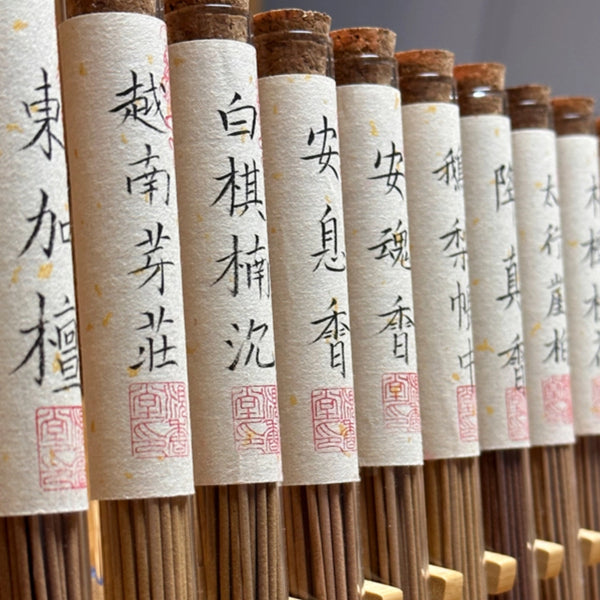 東加檀
越南芽莊
白棋楠沉
安息香
安魂香
鵝梨帳中
降真香
太行崖柏